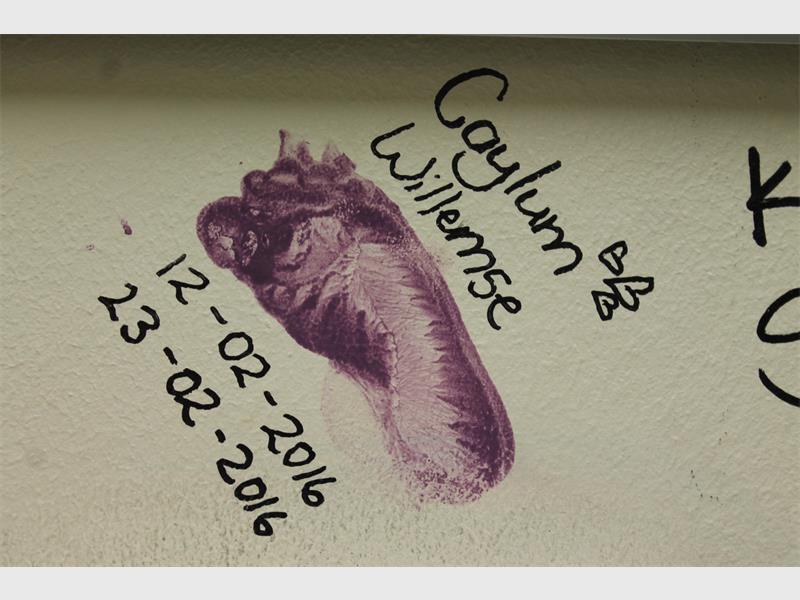 Caylum
Willemse
12-02-2016
23-02-2016